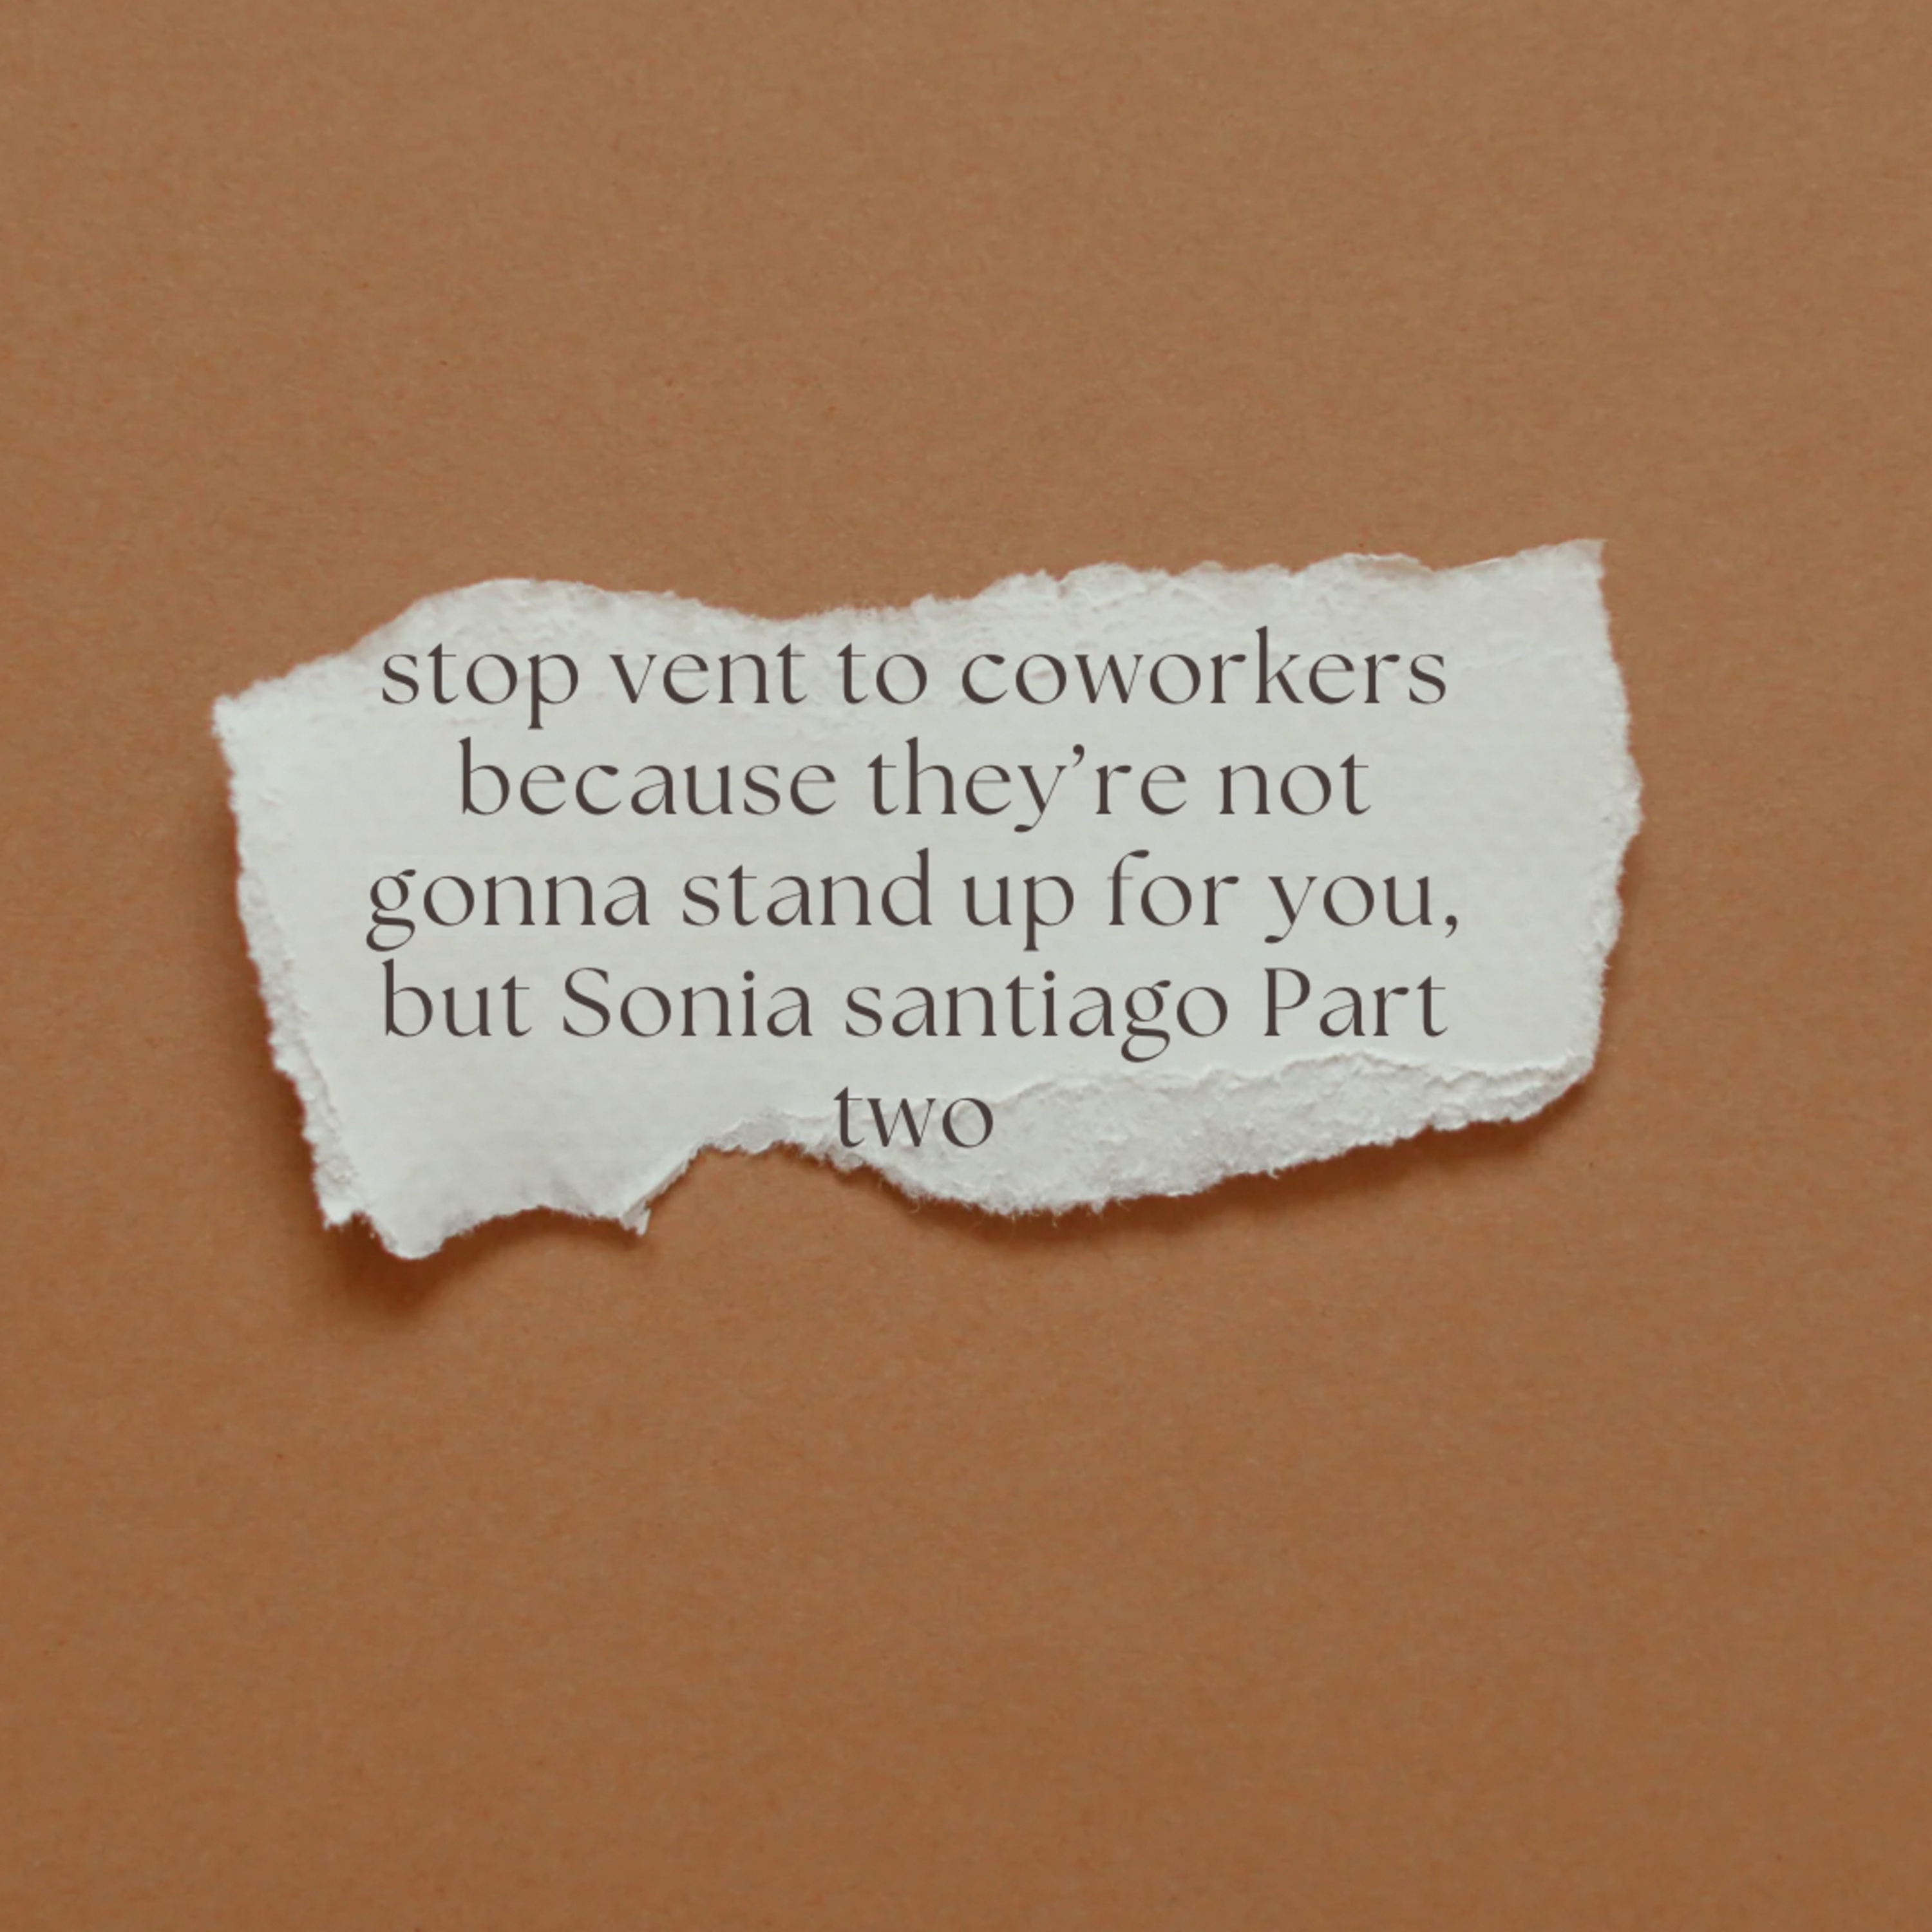 stop vent to coworkers
because they’re not
gonna stand up for you,
but Sonia santiago Part
two